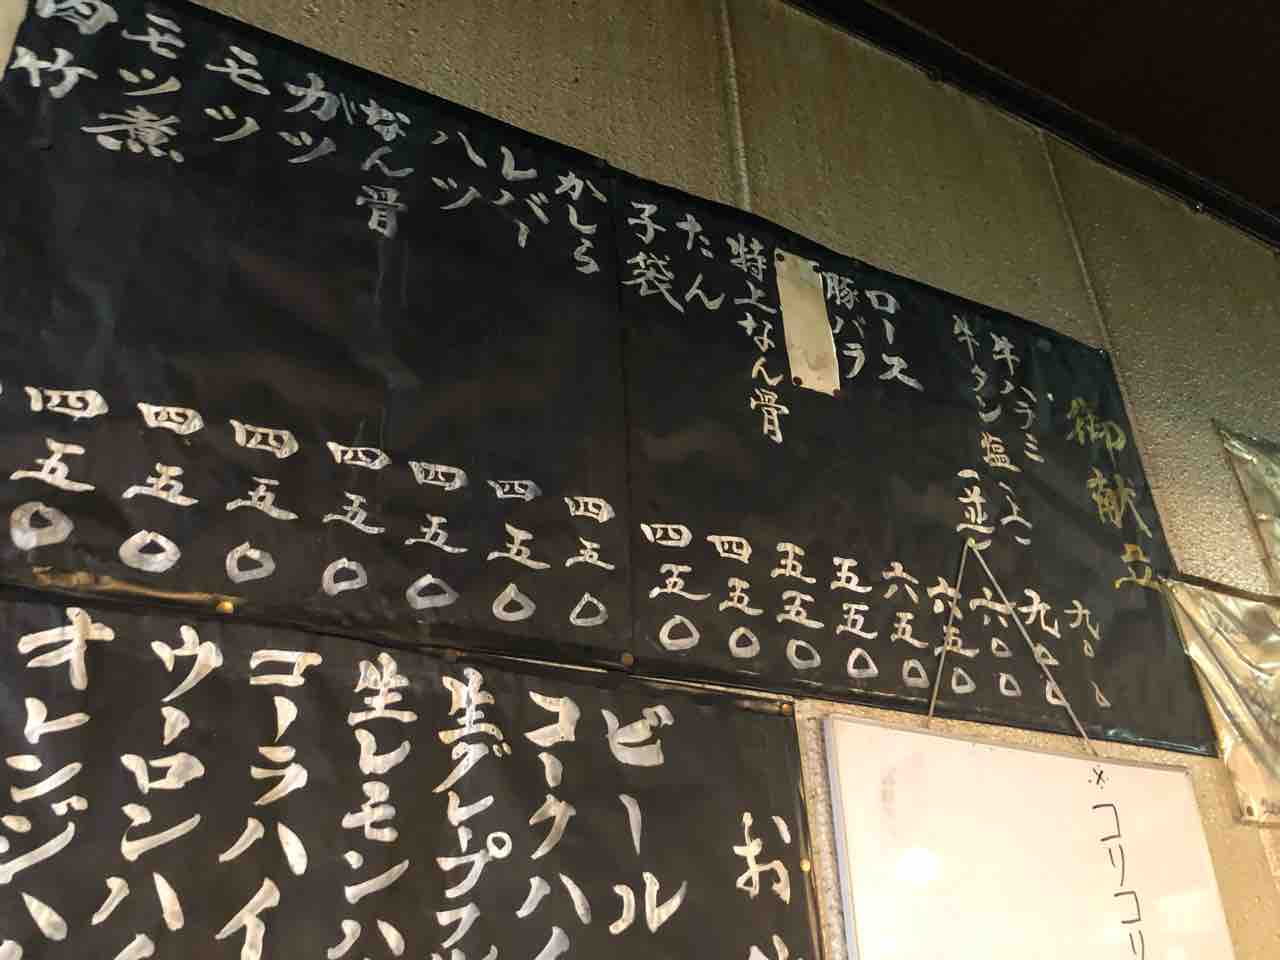 御献立
牛ハラミ 九〇〇
牛タン塩 上 九〇〇
並 六〇〇
ロース 六五〇
豚バラ 六五〇
五五〇
特上なん骨 五五〇
たん 四五〇
子袋 四五〇
かしら 四五〇
レバー 四五〇
ハツ 四五〇
なん骨 四五〇
ガツ 四五〇
モツ 四五〇
モツ煮 四五〇
肉竹
お
ビール
コークハイ
生グレープフル
生レモンハ
コーラハイ
ウーロンハイ
オレンジハ
※コリコリ